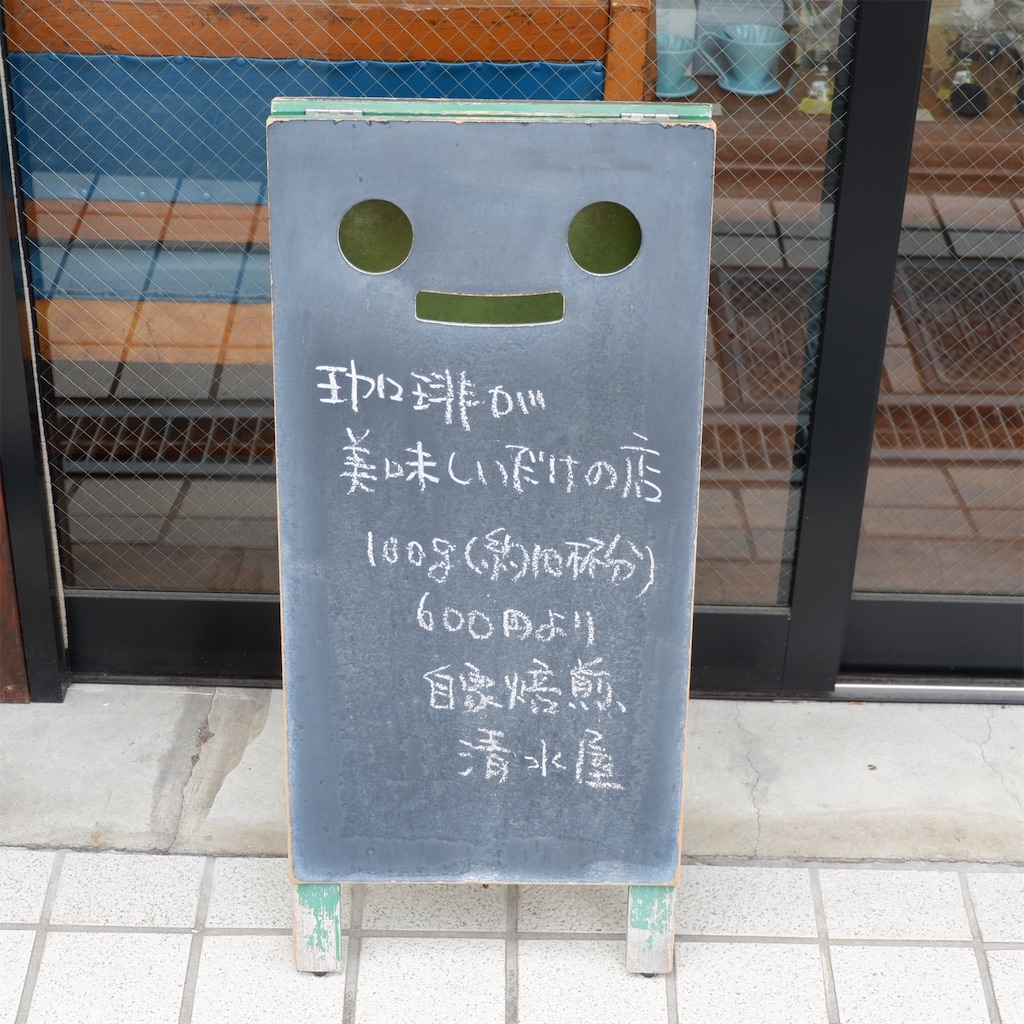 珈琲が
美味しいだけの店
100g(約10杯分)
600円より
自家焙煎
清水屋